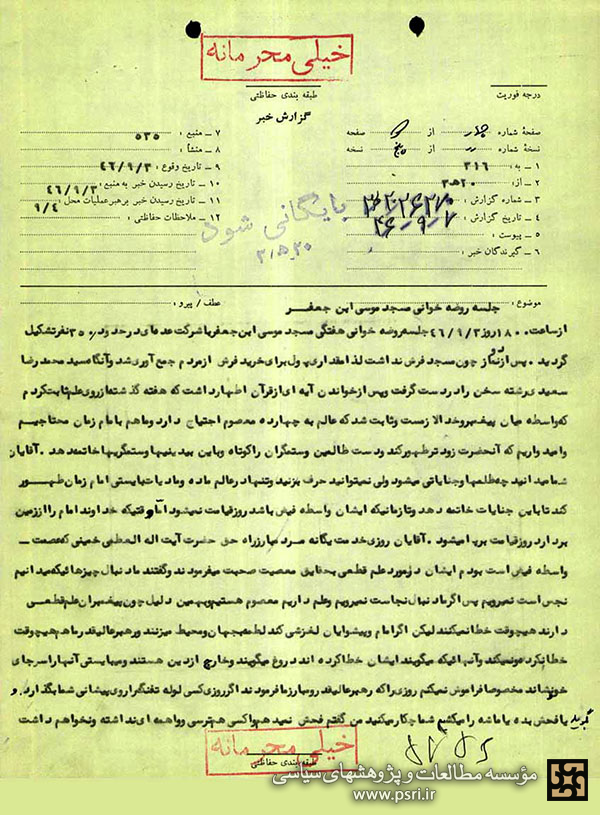 خیلی محرمانه
درجه فوریت
طبقه بندی حفاظتی
گزارش خبر
صفحهٔ شماره چهار از صفحه
نسخهٔ شماره از پنج نسخه
۱ ـ به : ۳۱۶
۲ ـ از : ۲۰ ه ۳
۳ ـ شماره گزارش :
۴ ـ تاریخ گزارش : ۴۶ـ۹ـ۷
۵ ـ پیوست :
۶ ـ گیرندگان خبر :
۷ ـ منبع : ۵۳۵
۸ ـ منشأ :
۹ ـ تاریخ وقوع : ۴۶/۹/۳
۱۰ ـ تاریخ رسیدن خبر به منبع : ۴۶/۹/۳
۱۱ ـ تاریخ رسیدن خبر برهبر عملیات محل : ۹/۴
۱۲ ـ ملاحظات حفاظتی :
بایگانی شود
موضوع : جلسه روضه خوانی مسجد موسی ابن جعفر
عطف / پیرو :
از ساعت ۱۸۰۰ روز ۴۶/۹/۳ جلسه روضه خوانی هفتگی مسجد موسی ابن جعفر با شرکت عده ای در حدود ۳۵۰ نفر تشکیل
گردید . پس از نماز چون مسجد فرش نداشت لذا مقداری پول برای خرید فرش از مردم جمع آوری شد و آنگاه سید محمد رضا
سعیدی رشته سخن را در دست گرفت و پس از خواندن آیه ای از قرآن اظهار داشت که هفته گذشته از روی علم ثابت کردم
که واسطه میان پیغمبر و خدا لازم است و ثابت شد که عالم به چهارده معصوم احتیاج دارد و ما هم با امام زمان محتاجیم
و امیدواریم که آنحضرت زودتر ظهور کند و دست ظالمین و ستمگران را کوتاه و باین بیدینیها و ستمگریها خاتمه دهد . آقایان
شما میدانید چه ظلمها و جنایاتی میشود ولی نمیتوانید حرف بزنید و تنها در عالم ماده و مادیات بایستی امام زمان ظهور
کند تا باین جنایات خاتمه دهد و تا زمانیکه ایشان واسطه فیض باشد روز قیامت نمیشود اما وقتیکه خداوند امام را از زمین
بردارد روز قیامت برپا میشود . آقایان روزی خدمت یگانه مرد مبارز راه حق حضرت آیت اله العظمی خمینی که عصمت ـ
واسطه فیض است بودم ایشان در مورد علم قطعی بحقایق معصیت صحبت میفرمودند و گفتند ما دنبال چیزهائیکه میدانیم
نجس است نمیرویم پس اگر ما دنبال نجاست نمیرویم و علم داریم معصوم هستیم و بهمین دلیل چون پیغمبران علم قطعی
دارند هیچوقت خطا نمیکنند لیکن اگر امام و پیشوایان لغزشی کند لطمه بجهان و محیط میزنند و رهبر عالیقدر ما هم هیچوقت
خطا نکرده و نمیکند و آنهائیکه میگویند ایشان خطا کرده اند دروغ میگویند و خارج از دین هستند و میبایستی آنها را سر جای
خود نشاند مخصوصا فراموش نمیکنم روزی را که رهبر عالیقدر و مبارز ما فرمودند اگر روزی کسی لوله تفنگ را روی پیشانی شما بگذارد و
بگوید یا فحش بده یا ماشه را میکشم شما چکار میکنید من گفتم فحش نمیدهم و از کسی هم ترسی و واهمه ای نداشته و نخواهم داشت
خیلی محرمانه
طبقه بندی حفاظتی
مؤسسه مطالعات و پژوهشهای سیاسی
www.psri.ir